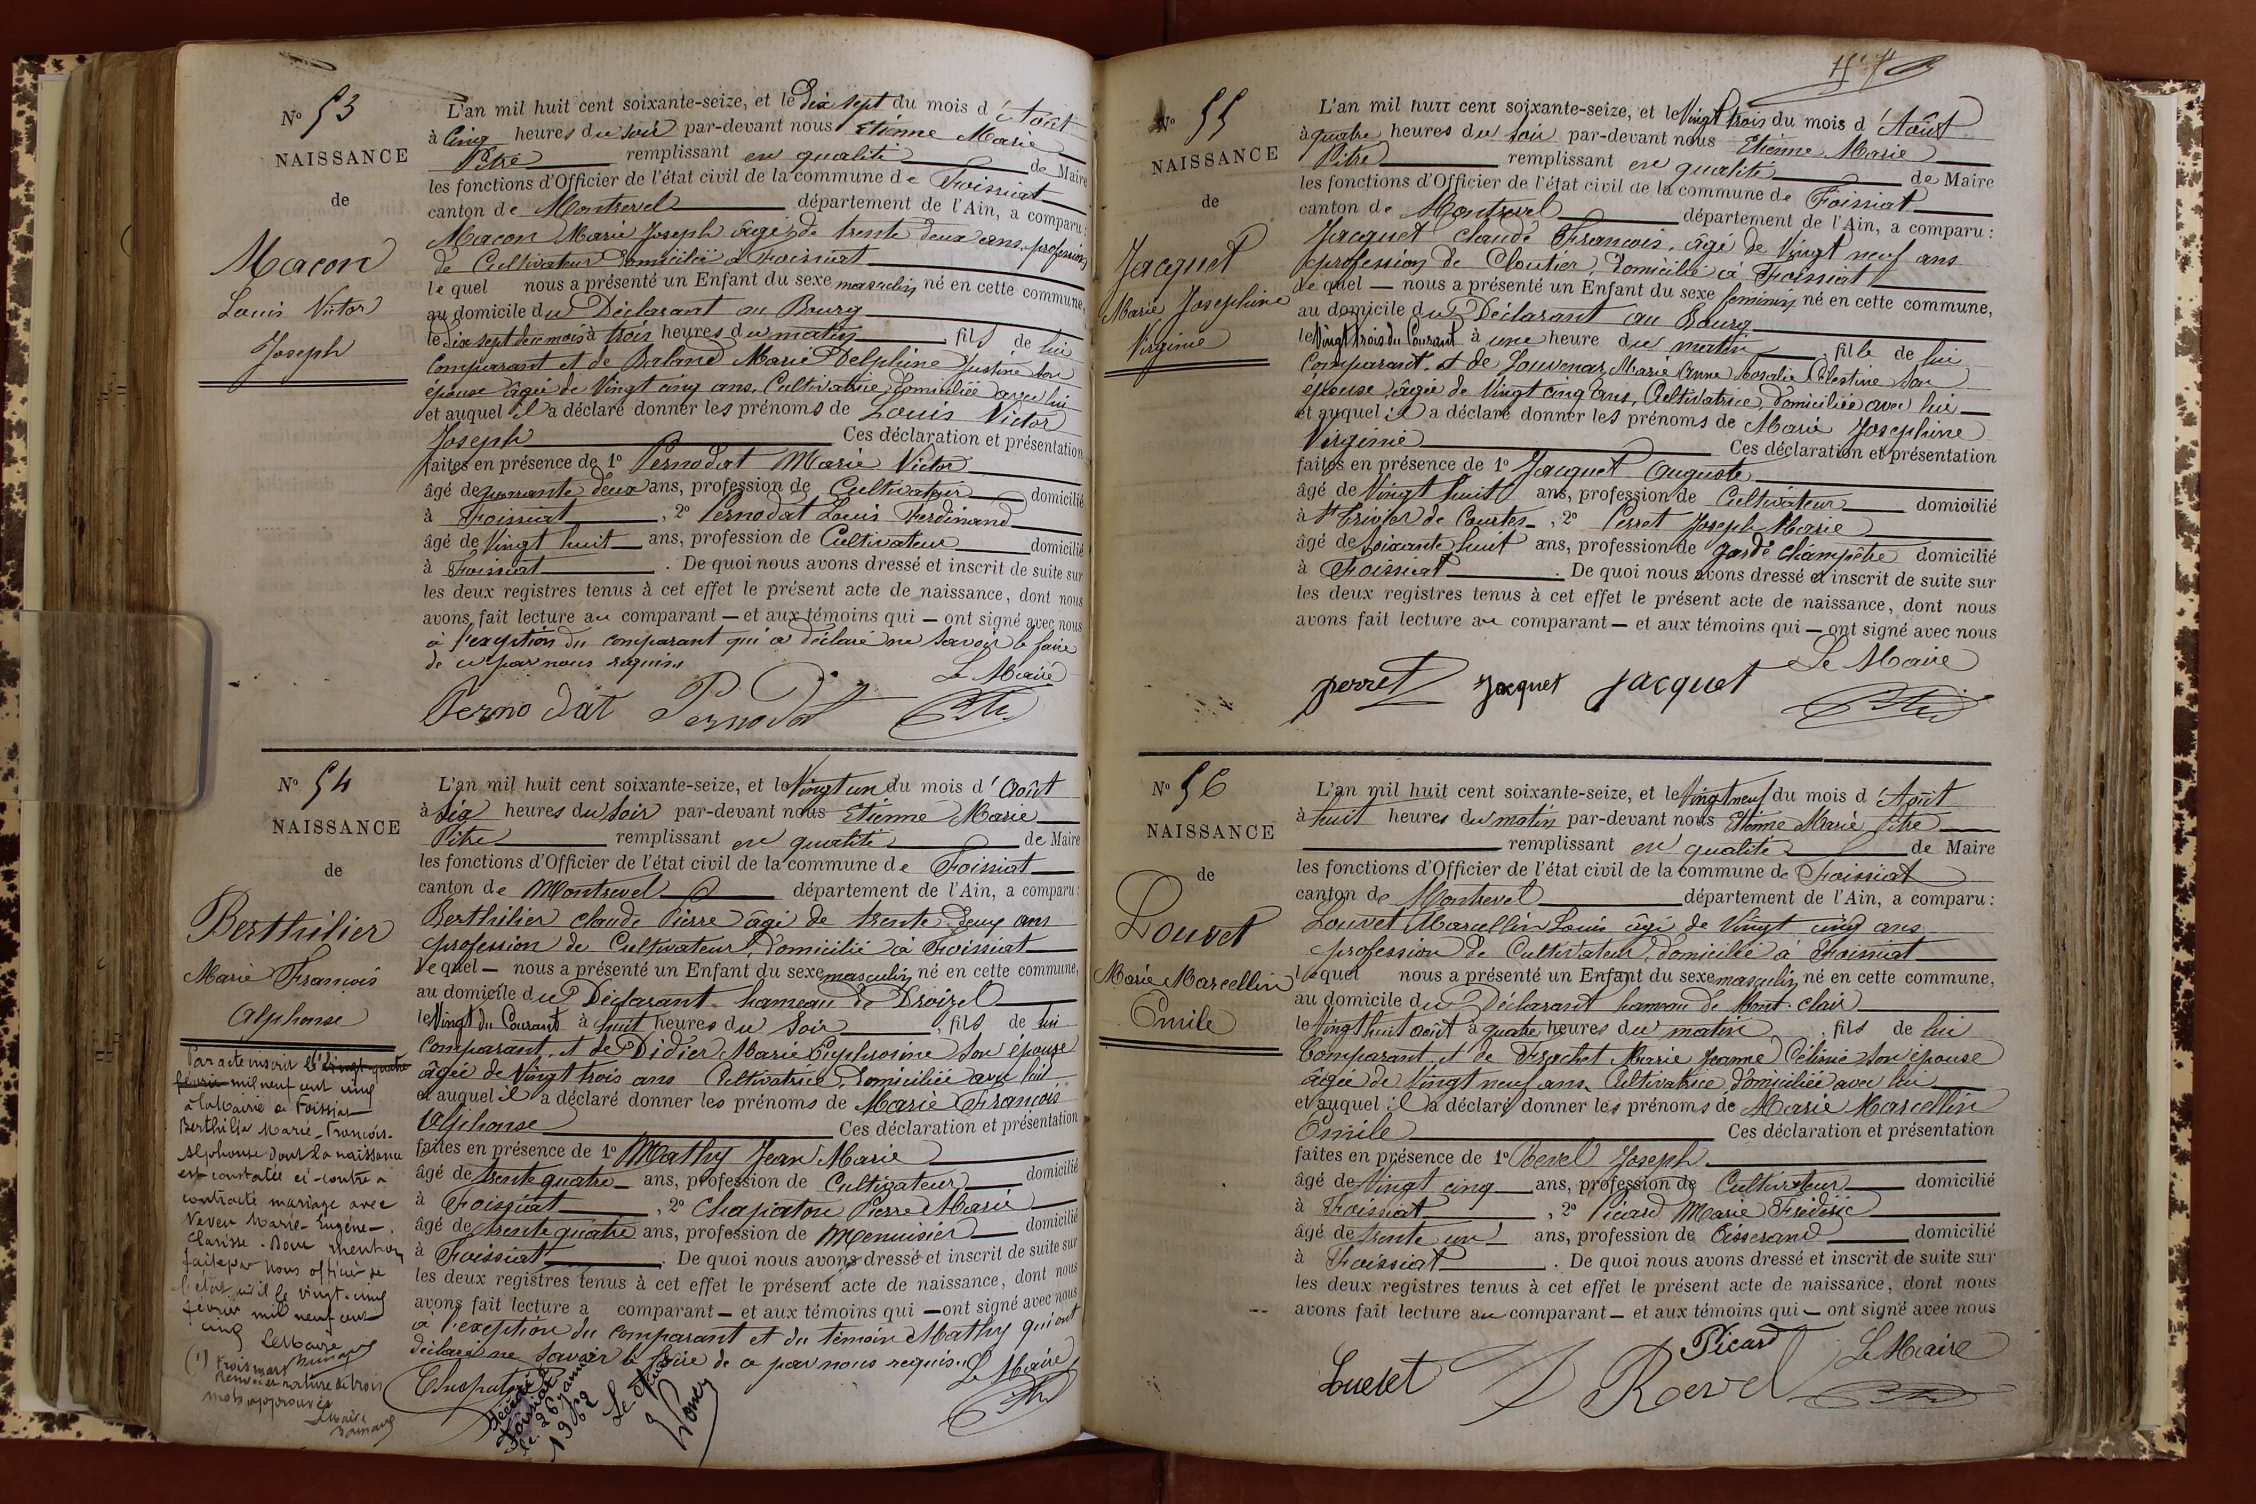 N° 53
NAISSANCE
de
Macon
Louis Victor
Joseph
L'an mil huit cent soixante-seize, et le Dix sept du mois d'Août
à Cinq heures du soir par-devant nous Etienne Marie
Pitre remplissant en qualité de Maire
les fonctions d'Officier de l'état civil de la commune de Foissiat
canton de Montrevel département de l'Ain, a comparu :
Macon Marie Joseph âgé de trente deux ans, profession
de Cultivateur domicilié à Foissiat
lequel nous a présenté un Enfant du sexe masculin né en cette commune,
au domicile du Déclarant au Bourg
le dix sept de ce mois à trois heures du matin, fils de lui
Comparant et de Baland Marie Delphine Justine son
épouse âgée de Vingt cinq ans, Cultivatrice domiciliée avec lui
et auquel il a déclaré donner les prénoms de Louis Victor
Joseph Ces déclaration et présentation
faites en présence de 1° Pernodat Marie Victor
âgé de quarante deux ans, profession de Cultivateur domicilié
à Foissiat, 2° Pernodat Louis Ferdinand
âgé de Vingt huit ans, profession de Cultivateur domicilié
à Foissiat. De quoi nous avons dressé et inscrit de suite sur
les deux registres tenus à cet effet le présent acte de naissance, dont nous
avons fait lecture au comparant — et aux témoins qui — ont signé avec nous
à l'exception du comparant qui a déclaré ne savoir le faire
de ce par nous requis.
Le Maire
Pernodat Pernodat Pitre
N° 54
NAISSANCE
de
Berthilier
Marie François
Alphonse
L'an mil huit cent soixante-seize, et le Vingt un du mois d'Août
à Six heures du Soir par-devant nous Etienne Marie
Pitre remplissant en qualité de Maire
les fonctions d'Officier de l'état civil de la commune de Foissiat
canton de Montrevel département de l'Ain, a comparu :
Berthilier Claude Pierre âgé de trente deux ans
profession de Cultivateur, domicilié à Foissiat
lequel — nous a présenté un Enfant du sexe masculin né en cette commune,
au domicile du Déclarant hameau de Droizel
le Vingt du Courant à huit heures du Soir, fils de lui
Comparant, et de Didier Marie Euphrosine son épouse
âgée de Vingt trois ans Cultivatrice, domiciliée avec lui
et auquel il a déclaré donner les prénoms de Marie François
Alphonse Ces déclaration et présentation
faites en présence de 1° Mathy Jean Marie
âgé de trente quatre ans, profession de Cultivateur domicilié
à Foissiat, 2° Chapaton Pierre Marie
âgé de trente quatre ans, profession de Menuisier domicilié
à Foissiat. De quoi nous avons dressé et inscrit de suite sur
les deux registres tenus à cet effet le présent acte de naissance, dont nous
avons fait lecture a comparant — et aux témoins qui — ont signé avec nous
à l'exception du comparant et du témoin Mathy qui ont
déclaré ne savoir le faire de ce par nous requis.
Le Maire
Chapaton Pitre
Par acte inscrit le vingt-quatre
février mil neuf cent cinq
à la Mairie de Foissiat
Berthilier Marie-François-
Alphonse dont la naissance
est constatée ci-contre a
contracté mariage avec
Neveu Marie-Eugénie-
Clarisse. Dont mention
faite par nous officier de
l'état civil le vingt-cinq
février mil neuf cent
cinq
Le Maire
(1) trois mars
Renvoi et rature de trois
mots approuvés
Le Maire
Décédé à
Foissiat
le 26 janv
1962
Le Maire
N° 55
NAISSANCE
de
Jacquet
Marie Josephine
Virginie
L'an mil huit cent soixante-seize, et le Vingt trois du mois d'Août
à quatre heures du soir par-devant nous Etienne Marie
Pitre remplissant en qualité de Maire
les fonctions d'Officier de l'état civil de la commune de Foissiat
canton de Montrevel département de l'Ain, a comparu :
Jacquet Claude François, âgé de Vingt neuf ans
profession de Cloutier, domicilié à Foissiat
lequel — nous a présenté un Enfant du sexe féminin né en cette commune,
au domicile du Déclarant au Bourg
le Vingt trois du Courant à une heure du matin, fille de lui
Comparant, et de Louvenas Marie Anne Rosalie Célestine son
épouse, âgée de Vingt cinq ans, Cultivatrice, domiciliée avec lui
et auquel il a déclaré donner les prénoms de Marie Josephine
Virginie Ces déclaration et présentation
faites en présence de 1° Jacquet Auguste
âgé de Vingt huit ans, profession de Cultivateur domicilié
à St Trivier de Courtes, 2° Perret Joseph Marie
âgé de soixante huit ans, profession de garde champêtre domicilié
à Foissiat. De quoi nous avons dressé et inscrit de suite sur
les deux registres tenus à cet effet le présent acte de naissance, dont nous
avons fait lecture au comparant — et aux témoins qui — ont signé avec nous
Le Maire
perret Jacquet Jacquet Pitre
N° 56
NAISSANCE
de
Louvet
Marie Marcellin
Emile
L'an mil huit cent soixante-seize, et le Vingt neuf du mois d'Août
à huit heures du matin par-devant nous Etienne Marie Pitre
remplissant en qualité de Maire
les fonctions d'Officier de l'état civil de la commune de Foissiat
canton de Montrevel département de l'Ain, a comparu :
Louvet Marcellin Louis âgé de Vingt cinq ans
profession de Cultivateur, domicilié à Foissiat
lequel nous a présenté un Enfant du sexe masculin né en cette commune,
au domicile du Déclarant hameau de Mont-clair
le Vingt huit août à quatre heures du matin, fils de lui
Comparant, et de Frachet Marie Jeanne Céline son épouse
âgée de Vingt neuf ans, Cultivatrice domiciliée avec lui
et auquel il a déclaré donner les prénoms de Marie Marcellin
Emile Ces déclaration et présentation
faites en présence de 1° Revel Joseph
âgé de Vingt cinq ans, profession de Cultivateur domicilié
à Foissiat, 2° Picard Marie Frédéric
âgé de trente un ans, profession de Tisserand domicilié
à Foissiat. De quoi nous avons dressé et inscrit de suite sur
les deux registres tenus à cet effet le présent acte de naissance, dont nous
avons fait lecture au comparant — et aux témoins qui — ont signé avec nous
Picard Le Maire
Louvet Revel Pitre